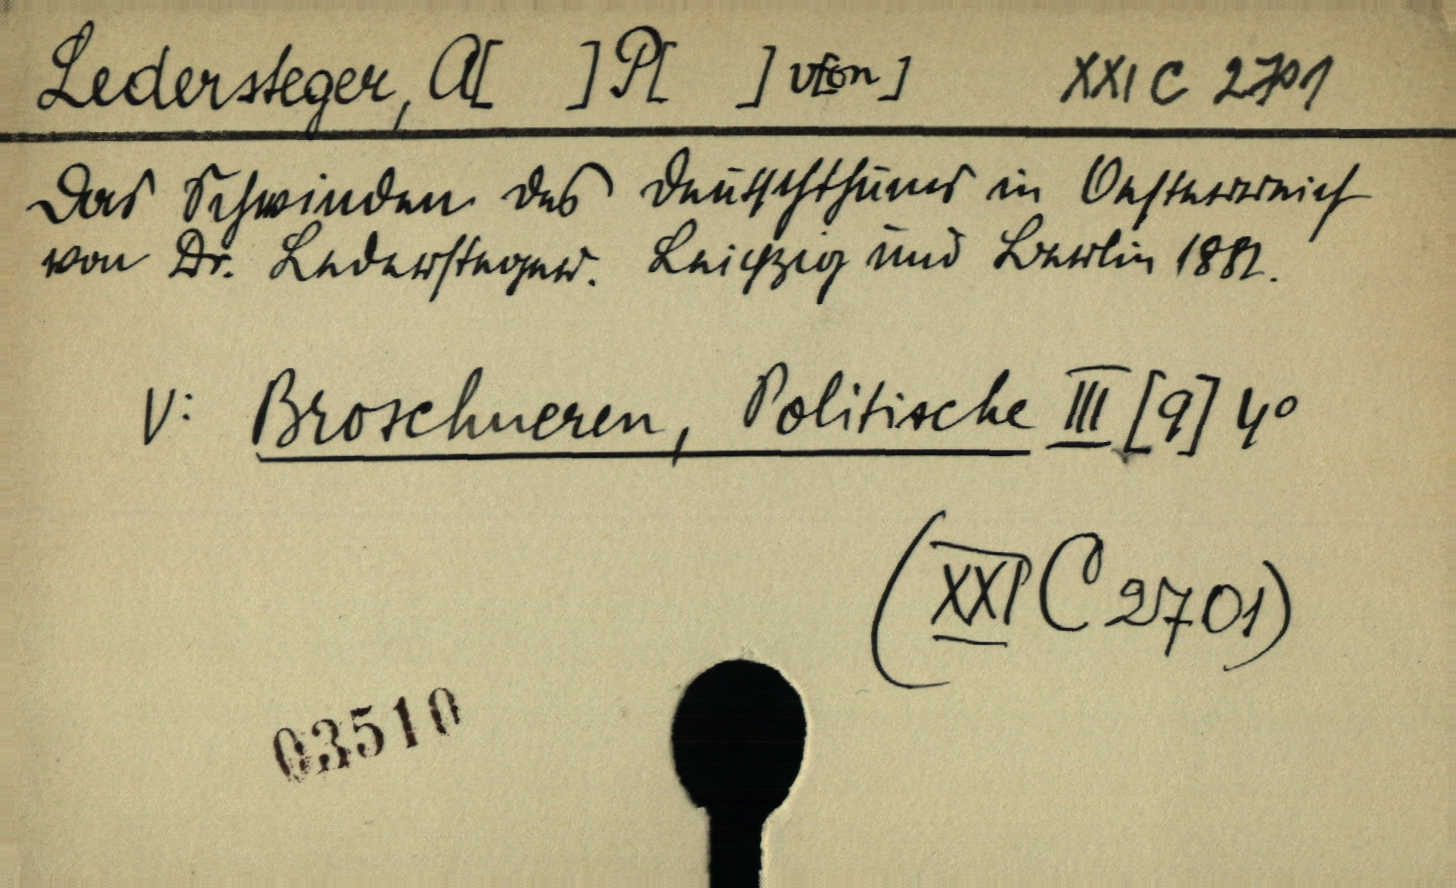 Ledersteger, A[ ] P[ ] v[on] XXI C 2701
Das Schwinden des Deutschthums in Oesterreich
von Dr. Ledersteger. Leipzig und Berlin 1881.
V: Broschueren, Politische III [9] 4°
(XXI C 2701)
03510